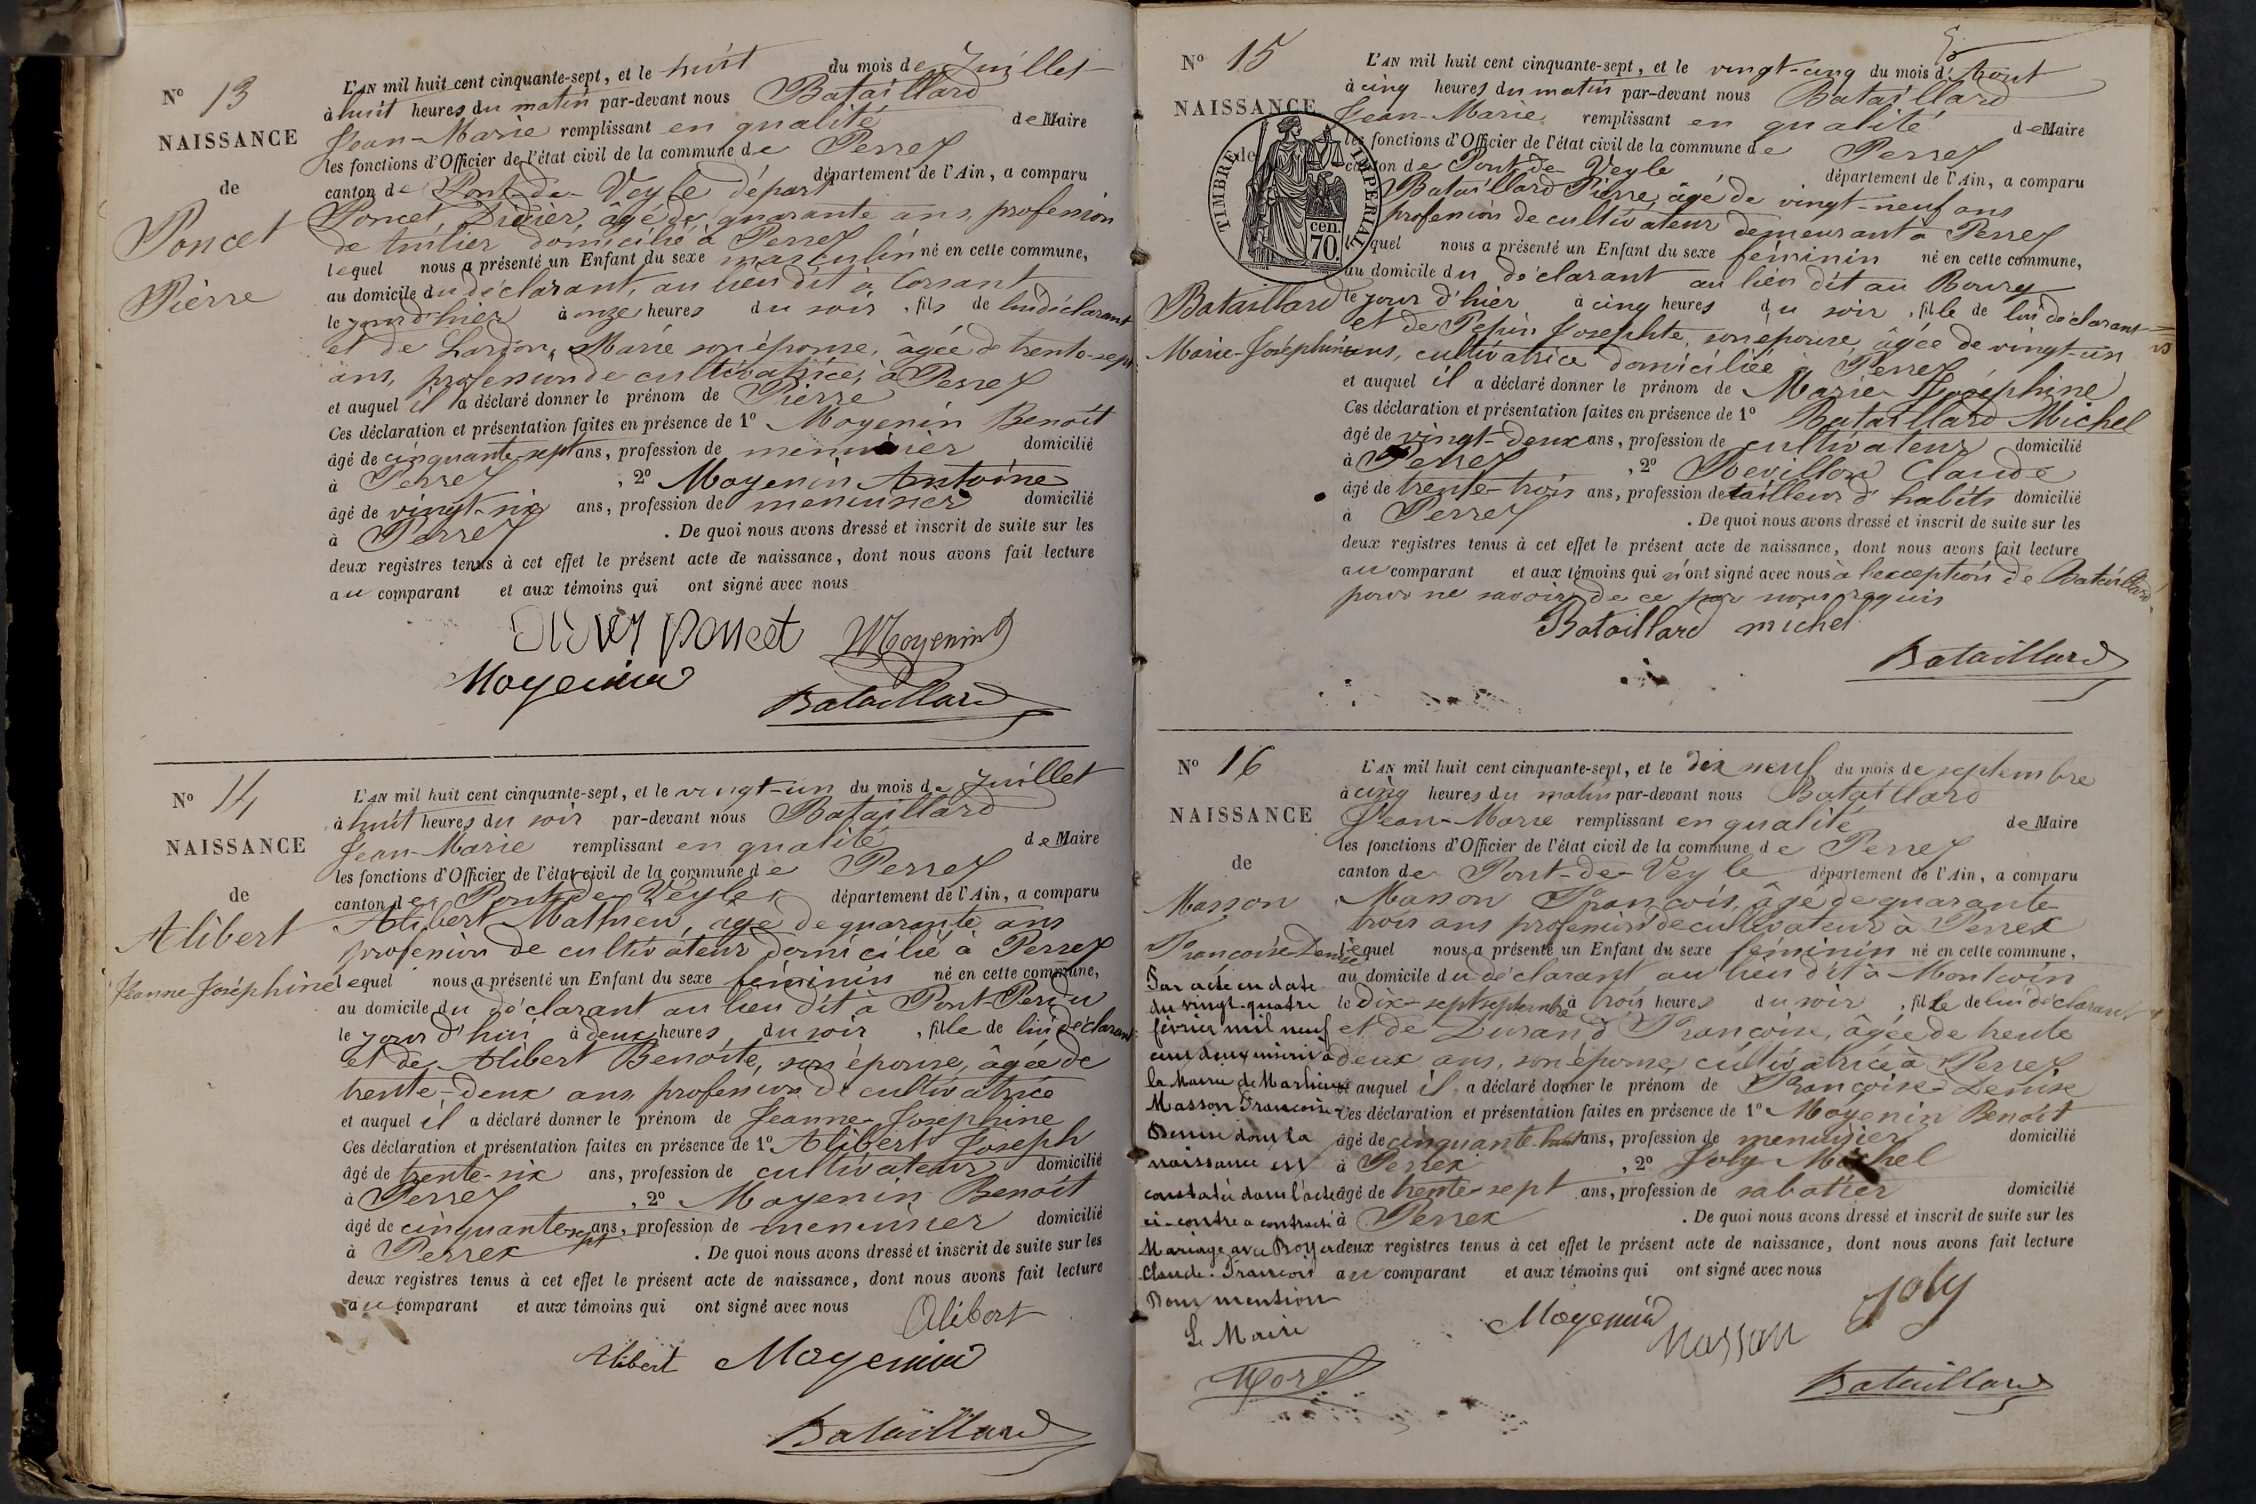 N° 13
NAISSANCE
de
Poncet
Pierre
L'AN mil huit cent cinquante-sept, et le huit du mois de Juillet
à huit heures du matin par-devant nous Bataillard
Jean-Marie remplissant en qualité de Maire
les fonctions d'Officier de l'état civil de la commune de Perrex
canton de Pont-de-Veyle départ département de l'Ain, a comparu
Poncet Didier, âgé de quarante ans, profession
de tuilier domicilié à Perrex
lequel nous a présenté un Enfant du sexe masculin né en cette commune,
au domicile du déclarant, au lieu dit à Corsant
le jour d'hier à onze heures du soir, fils de lui déclarant
et de Lardon, Marie son épouse, âgée de trente-sept
ans, profession de cultivatrice, à Perrex
et auquel il a déclaré donner le prénom de Pierre
Ces déclaration et présentation faites en présence de 1° Moyenin Benoît
âgé de cinquante-sept ans, profession de menuisier domicilié
à Perrex, 2° Moyenin Antoine
âgé de vingt-six ans, profession de menuisier domicilié
à Perrex. De quoi nous avons dressé et inscrit de suite sur les
deux registres tenus à cet effet le présent acte de naissance, dont nous avons fait lecture
au comparant et aux témoins qui ont signé avec nous
poncet Moyenin
Moyenin
Bataillard
N° 14
NAISSANCE
de
Alibert
Jeanne Joséphine
L'AN mil huit cent cinquante-sept, et le vingt-un du mois de Juillet
à huit heures du soir par-devant nous Bataillard
Jean-Marie remplissant en qualité de Maire
les fonctions d'Officier de l'état civil de la commune de Perrex
canton de Pont-de-Veyle département de l'Ain, a comparu
Alibert Mathieu, âgé de quarante ans
profession de cultivateur domicilié à Perrex
lequel nous a présenté un Enfant du sexe féminin né en cette commune,
au domicile du déclarant au lieu dit à Pont-Perdu
le jour d'hui à deux heures du soir, fille de lui déclarant
et de Alibert Benoîte, son épouse, âgée de
trente-deux ans profession de cultivatrice
et auquel il a déclaré donner le prénom de Jeanne-Josephine
Ces déclaration et présentation faites en présence de 1° Alibert Joseph
âgé de trente-six ans, profession de cultivateur domicilié
à Perrex, 2° Moyenin Benoît
âgé de cinquante sept ans, profession de menuisier domicilié
à Perrex. De quoi nous avons dressé et inscrit de suite sur les
deux registres tenus à cet effet le présent acte de naissance, dont nous avons fait lecture
au comparant et aux témoins qui ont signé avec nous
Alibert
Alibert Moyenin
Bataillard
N° 15
NAISSANCE
de
TIMBRE IMPERIAL
70 cen.
Bataillard
Marie-Joséphine
L'AN mil huit cent cinquante-sept, et le vingt-cinq du mois d'Août
à cinq heures du matin par-devant nous Bataillard
Jean-Marie remplissant en qualité de Maire
les fonctions d'Officier de l'état civil de la commune de Perrex
canton de Pont-de-Veyle département de l'Ain, a comparu
Bataillard Pierre, âgé de vingt-neuf ans
profession de cultivateur demeurant à Perrex
lequel nous a présenté un Enfant du sexe féminin né en cette commune,
au domicile du déclarant au lieu dit au Bourg
le jour d'hier à cinq heures du soir, fille de lui déclarant
et de Pepin Josephte, son épouse, âgée de vingt-un
ans, cultivatrice domiciliée à Perrex
et auquel il a déclaré donner le prénom de Marie Joséphine
Ces déclaration et présentation faites en présence de 1° Bataillard Michel
âgé de vingt-deux ans, profession de cultivateur domicilié
à Perrex, 2° Revillon Claude
âgé de trente-trois ans, profession de tailleur d'habits domicilié
à Perrex. De quoi nous avons dressé et inscrit de suite sur les
deux registres tenus à cet effet le présent acte de naissance, dont nous avons fait lecture
au comparant et aux témoins qui n'ont signé avec nous à l'exception de Bataillard
pour ne savoir de ce par nous requis
Bataillard michel
Bataillard
N° 16
NAISSANCE
de
Masson
Françoise Denise
Par acte en date
du vingt-quatre
février mil neuf
cent deux inscrit à
la Mairie de
Masson Françoise
Denise dont la
naissance est
constatée dans l'acte
ci-contre a contracté
Mariage avec Boyer
Claude-François
Dont mention
Le Maire
Morel
L'AN mil huit cent cinquante-sept, et le dix neuf du mois de septembre
à cinq heures du matin par-devant nous Bataillard
Jean-Marie remplissant en qualité de Maire
les fonctions d'Officier de l'état civil de la commune de Perrex
canton de Pont-de-Veyle département de l'Ain, a comparu
Masson François, âgé de quarante
trois ans profession de cultivateur à Perrex
lequel nous a présenté un Enfant du sexe féminin né en cette commune,
au domicile du déclarant au lieu dit à Montcoin
le dix-sept septembre à trois heures du soir, fille de lui déclarant
et de Durand Françoise, âgée de trente
deux ans, son épouse, cultivatrice à Perrex
et auquel il a déclaré donner le prénom de Françoise-Denise
Ces déclaration et présentation faites en présence de 1° Moyenin Benoît
âgé de cinquante huit ans, profession de menuisier domicilié
à Perrex, 2° Joly Michel
âgé de trente-sept ans, profession de sabotier domicilié
à Perrex. De quoi nous avons dressé et inscrit de suite sur les
deux registres tenus à cet effet le présent acte de naissance, dont nous avons fait lecture
au comparant et aux témoins qui ont signé avec nous
Moyenin Masson Joly
Bataillard